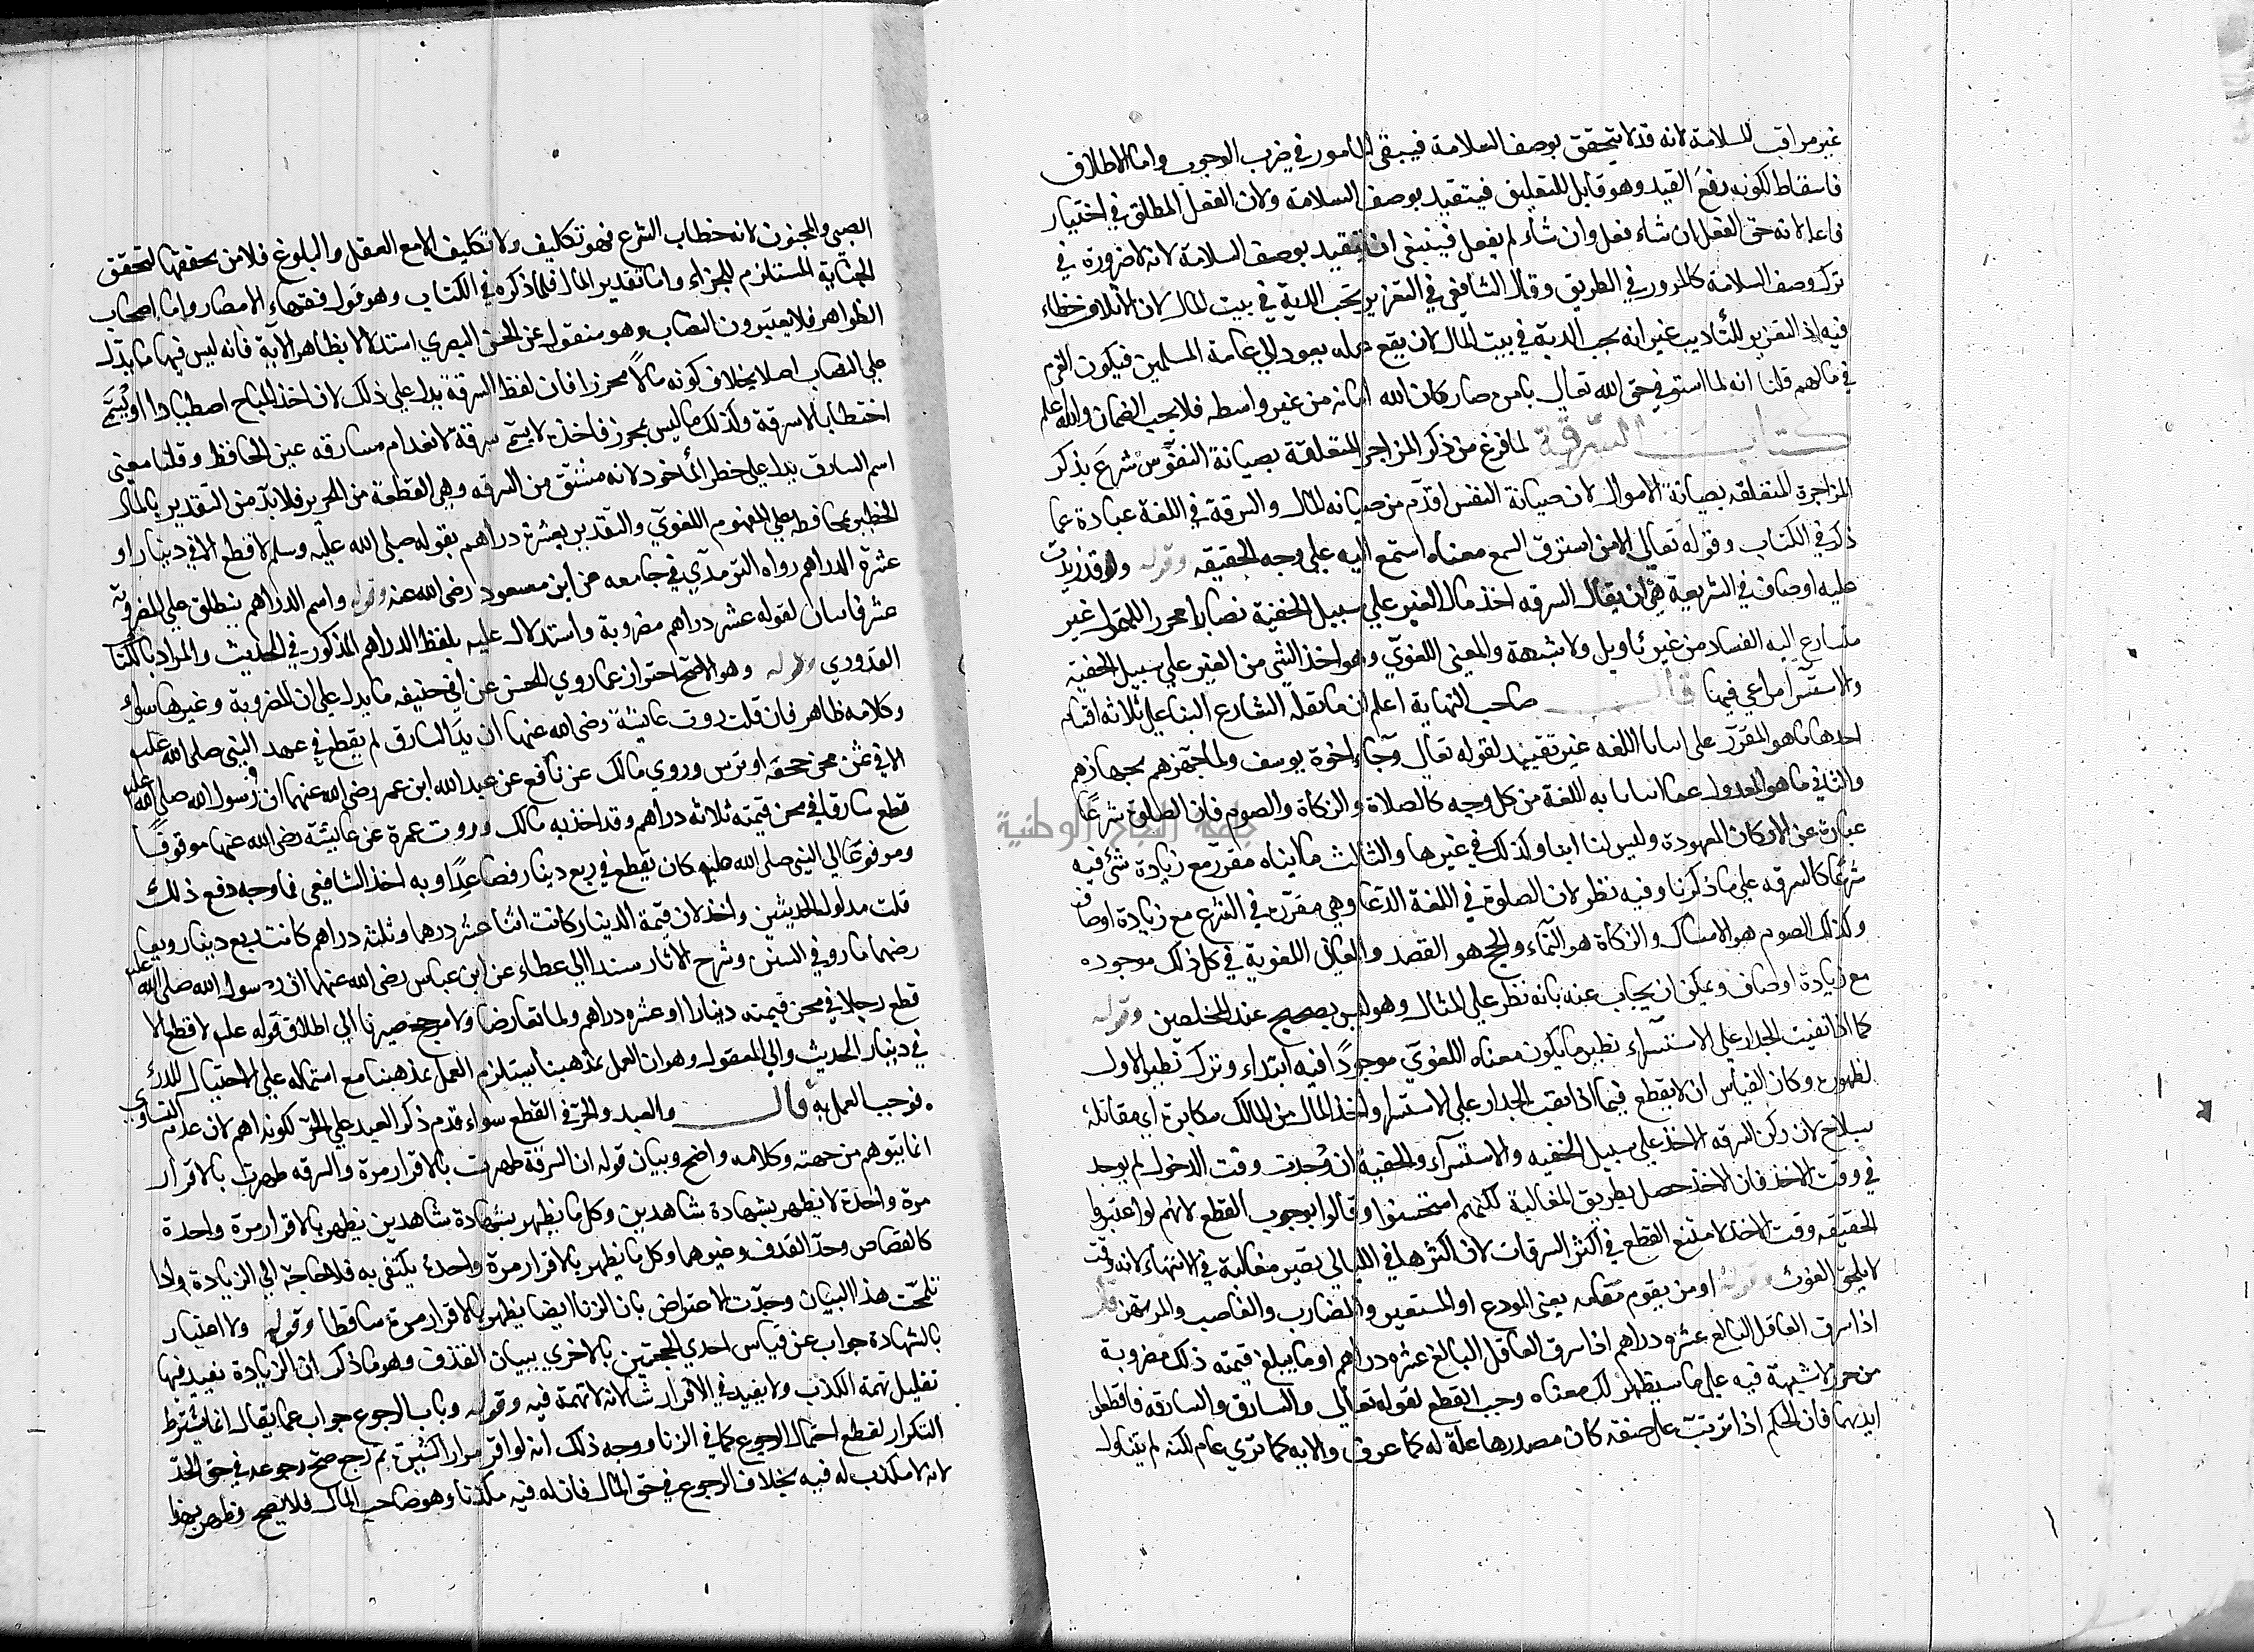 غير مراقب للسلامة لانه قد لا يتحقق بوصف السلامة فيبقى المامور في ضرب الوجوب واما الاطلاق
فاسقاط لكونه رفع القيد وهو قابل للتعليق فيتقيد بوصف السلامة ولان الفعل المطلق في اختيار
فاعله لانه حتى الفعل ان شاء فعل وان شاء لم يفعل فينبغي ان يتقيد بوصف السلامة لانه لا ضرورة في
ترك وصف السلامة كالمرور في الطريق وقال الشافعي في التعزير تجب الدية في بيت المال لان الاتلاف خطاء
فيه اذ التعزير للتاديب غير انه يجب الدية في بيت المال لان يقع عمله يعود الي عامة المسلمين فيكون الغرم
في مالهم قلنا انه لما استوفي حق الله تعالي بامره صار كان الله اماته من غير واسطه فلا يجب الضمان والله اعلم
كتاب السرقة لما فرغ من ذكر المزاجر المتعلقة بصيانة النفوس شرع بذكر
المزاجرة المتعلقه بصيانة الاموال لان صيانة النفس اقدم من صيانه المال والسرقة في اللغة عبارة عما
ذكر في الكتاب وقوله تعالي الا من استرق السمع معناه استمع اليه علي وجه الحقيقه وقوله وقد زيدت
عليه اوصاف في الشريعة هي ان يقال السرقه اخذ مال الغير علي سبيل الخفية نصابا محرزا للتمول غير
متسارع اليه الفساد من غير تاويل ولا شبهة والمعني اللغوي وهو اخذ الشي من الغير علي سبيل الخفية
والاستسرار مراعي فيها قال صاحب النهاية اعلم ان ما نقله الشارع الينا علي ثلاثه اقسام
احدها ما هو المقرر علي اللغه غير تغيير لقوله تعالي وجاء اخوة يوسف ولما جهزهم بجهازهم
والثاني ما هو المعدول عما به اللغة من كل وجه كالصلاة والزكاة والصوم فان الصلوة شرعا
عبارة عن الاركان المعهودة وليس لنا وكذلك في غيرها والثالث ما مقرر مع زيادة شئ فيه
شرعا كالسرقه علي ما ذكرنا وفيه نظر لان الصلوة في اللغة الدعا وهي مقررة في الشرع مع زيادة اوصاف
وكذلك الصوم هو الامساك والزكاة هو النماء والحج هو القصد والمعاني اللغوية في كل ذلك موجوده
مع زيادة اوصاف ويمكن ان يجاب عنه بانه نظر علي المثال وهو ليس بصحيح عند المحصلين وقوله
كما اذا نقب الجدار علي الاستسرار نظير ما يكون معناه اللغوي موجودا فيه ابتداء وترك نظير الاول
لظهوره وكان القياس ان لا يقطع فيما اذا نقب الجدار علي الاستسرار واخذ المال من المالك مكابرة اي مقاتلة
بسلاح لان ركن السرقه الاخذ علي سبيل الخفيه والاستسرار والخفية ان وجدت وقت الدخول لم يوجد
في وقت الاخذ فان الاخذ حصل بطريق المغالبة لكنهم استحسنوا وقالوا بوجوب القطع لانهم لو اعتبروا
الحقيقه وقت الاخذ لامتنع القطع في اكثر السرقات لان اكثرها في الليالي تصير مغالبة في الانتهاء لانه وقت
لا يلحق الغوث وقوله او من يقوم مقامه يعني المودع او المستعير والمضارب والغاصب والمرتهن قال
اذا سرق العاقل البالغ عشرة دراهم اذا سرق العاقل البالغ عشرة دراهم او ما يبلغ قيمته ذلك مضروبة
من حرز لا شبهة فيه علي ما سيظهر لك معناه وجب القطع لقوله تعالي والسارق والسارقه فاقطعوا
ايديهما فان الحكم اذا ترتب علي صفة كان مصدرها علة له كما عرف والايه كما تري عام لكنه لم يتناول
الصبي والمجنون لانه خطاب الشرع فهو تكليف ولا تكليف الا مع العقل والبلوغ فلا من تحققها لتحقق
الجناية المستلزم للجزاء واما تقدير المال فلما ذكره في الكتاب وهو قول فقهاء الامصار واما اصحاب
الظواهر فلا يعتبرون النصاب وهو منقول عن الحسن البصري استدلالا بظاهر الآية فانه ليس فيها ما يدل
علي النصاب اصلا بخلاف كونه مالا محرزا فان لفظ السرقة يدل علي ذلك لان اخذ المباح اصطيادا او يسمي
احتطابا لا سرقة وكذلك ما ليس بمحرز فاخذه لا يسمي سرقة لانعدام مسارقه عين الحافظ وقلنا معني
اسم السارق يدل علي خطر المأخوذ لانه مشتق من السرقه وهي القطعة من الحرير فلا بد من التقدير بالمال
الخطير محافظه علي المفهوم اللغوي والتقدير بعشرة دراهم بقوله صلي الله عليه وسلم لا قطع الا في دينار او
عشرة الدراهم رواه الترمذي في جامعه عن ابن مسعود رضي الله عنه وقوله واسم الدراهم ينطلق علي المضروبة
لقوله عشر دراهم مضروبة واستدلال عليه بلفظ الدراهم المذكور في الحديث والمراد بالكتاب
القدوري وقوله وهو الاصح احتراز عما روي الحسن عن ابي حنيفه ما يدل علي ان المضروبة وغيرها سواء
وكلامه ظاهر فان قلت روت عايشة رضي الله عنها ان يد السارق لم يقطع في عهد النبي صلي الله عليه
الا في ثمن مجن حجفة او ترس وروي مالك عن نافع عن عبد الله ابن عمر رضي الله عنهما ان رسول الله صلي الله عليه
قطع سارقا في مجن قيمته ثلاثه دراهم وقد اخذ به مالك وروت عمرة عن عايشة رضي الله عنها موقوفا
ومرفوعا الي النبي صلي الله عليه كان يقطع في ربع دينار فصاعدا وبه اخذ الشافعي فما وجه دفع ذلك
قلت مدلول الحديثين واحد لان قيمة الدينار كانت اثنا عشر درهما وثلثه دراهم كانت ربع دينار
ما روي في السنن وشرح الآثار سندا الي عطاء عن ابن عباس رضي الله عنهما ان رسول الله صلي الله عليه
قطع رجلا في مجن قيمته دينارا او عشرة دراهم ولما تعارضا ولا مرجح صيرنا الي اطلاق قوله علم لا قطع الا
في دينار الحديث والي المعقول وهو ان العمل بمذهبنا يستلزم العمل بمذهبنا مع اشتماله علي الاحتيال للدرئ
فوجب العمل به قال والعبد والحر في القطع سواء قدم ذكر العبد علي الحر لكونه اهم لان عدم التساوي
انما يتوهم من جهته وكلامه واضح وبيان قوله ان السرقة ظهرت بالاقرار مرة والسرقه ظهرت بالاقرار
مرة واحدة لا يظهر بشهادة شاهدين وكل ما يظهر بشهادة شاهدين يظهر بالاقرار مرة واحدة
كالقصاص وحد القذف وغيرهما وكل ما يظهر بالاقرار مرة واحدة يكتفي به فلا حاجة الي الزيادة واذا
تلمحت هذا البيان وجدت الاعتراض بان الزنا ايضا يظهر بالاقرار مرة ساقطا وقوله ولا اعتبار
بالشهادة جواب عن قياس احدي الحجتين بالاخري ببيان الفارق وهو ما ذكر ان الزيادة تفيد فيها
تقليل تهمة الكذب ولا يفيد في الاقرار شيأ لانه لا تهمة فيه وقوله وباب الرجوع جواب عما يقال انما يشترط
التكرار لقطع احتمال الرجوع كما في الزنا ووجه ذلك انه لو اقر مرارا كثيرة ثم رجع صح رجوعه في حق الحد
لانه لا مكذب له فيه بخلاف الرجوع في حق المال فان له فيه مكذبا وهو صاحب المال فلا يصح وظهر بهذا
جامعة النجاح الوطنية